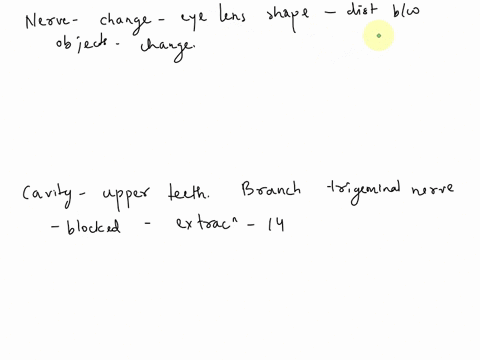 Nerve - change - eye lens shape - dist b/w
objects - change.
Cavity - upper teeth. Branch trigeminal nerve
- blocked - extracⁿ - 14